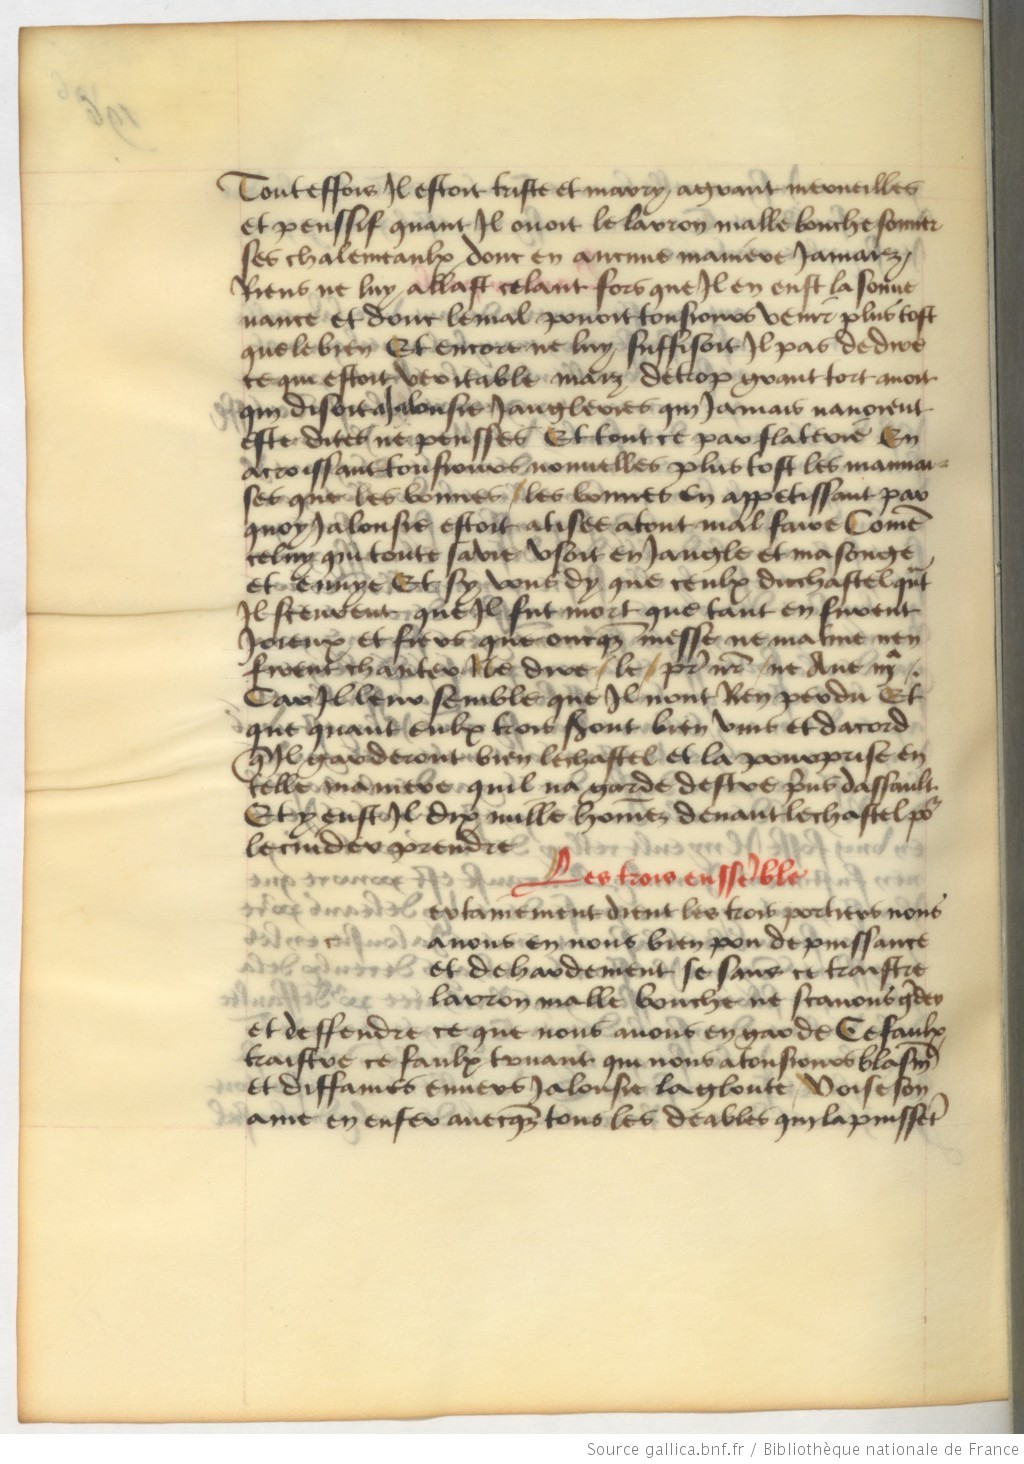 Touteffois Il estoit triste et marry agrant merueilles
et penssif quant Il ouoit le larron malle bouche sonner
ses chalemeaulx donc en aucune maniere Jamaiz
Riens ne luy allast celant fors que Il en eust la sonne
nance et donc le mal pouoit tousiours venir plus tost
que le bien Et encore ne luy suffisoit Il pas de dire
ce qui estoit veritable maiz de trop grant tort auoit
qui disoit a Jalousie Jangleries qui Jamais nauoient
este dites ne pensses Et tout ce par flaterie En
acroissant tousiours nouuelles plus tost les mauuai-
ses que les bonnes / les bonnes En appetissant par
quoy Jalousie estoit atisee atout mal faire Come
celuy qui toute sa vie vsoit en Jangle et masonge
et enuye Et sy vous dy que ceulx du chastel qut
Il sceurent que Il fut mort que tant en furent
Joieux et fiers que oncqz messe ne matine nen
firent chanter Ne dire / le / pr nr ne Aue ma /.
Car Il leur semble que Il nont Rien perdu Et
que quant eulx trois sont bien vnis et dacord
q Il garderont bien le chastel et la pourprise en
telle maniere quil na garde destre pris dassault
Et y eust Il dix mille homez deuant le chastel por
le cuider prendre
Les trois enssemble
ertainement dient les trois portiers nous
auons en nous bien pou de puissance
et de hardement se sans ce traistre
larron malle bouche ne scauons gder
et deffendre ce que nous auons en garde Ce faulx
traistre ce faulx truant qui nous a tousiours blasme
et diffames enuers Jalousie la gloute / Voise son
ame en enfer auecqz tous les deables qui la puisset